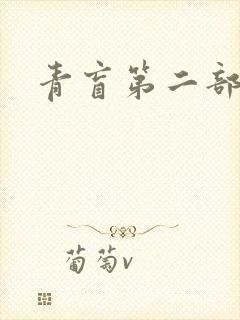 青盲第二部
葡萄v